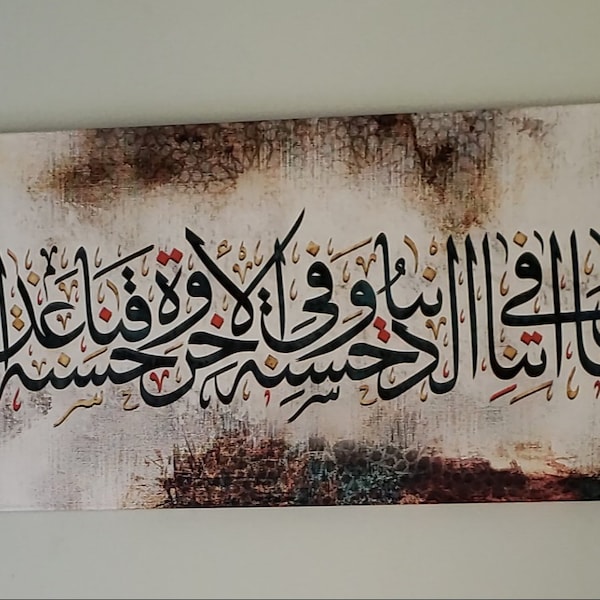 اتنا في الدنيا حسنة و في الاخرة حسنة و قنا عذا